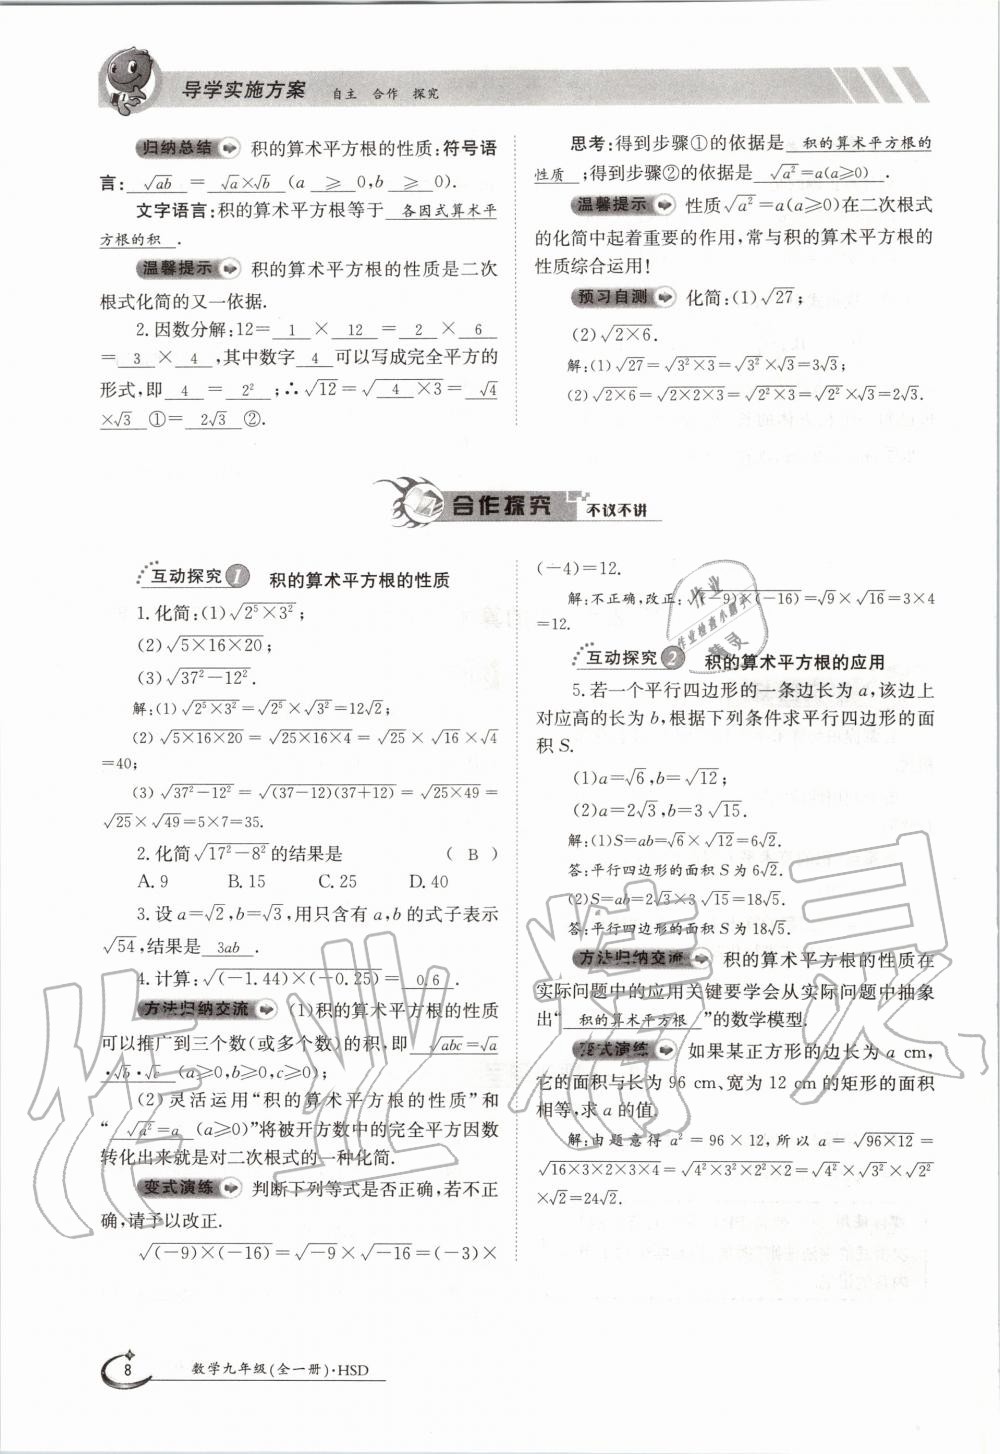 导学实施方案 自主 合作 探究
归纳总结 积的算术平方根的性质:符号语
言: √ab = √a×√b (a ≥ 0,b ≥ 0).
文字语言:积的算术平方根等于 各因式算术平
方根的积 .
温馨提示 积的算术平方根的性质是二次
根式化简的又一依据.
2.因数分解:12= 1 × 12 = 2 × 6
= 3 × 4 ,其中数字 4 可以写成完全平方的
形式,即 4 = 2² ;∴√12=√4×3= √4
×√3 ①= 2√3 ②.
思考:得到步骤①的依据是 积的算术平方根的
性质 ;得到步骤②的依据是 √a²=a(a≥0) .
温馨提示 性质√a²=a(a≥0)在二次根式
的化简中起着重要的作用,常与积的算术平方根的
性质综合运用!
预习自测 化简:(1)√27;
(2)√2×6.
解:(1)√27=√3²×3=√3²×√3=3√3;
(2)√2×6=√2×2×3=√2²×3=√2²×√3=2√3.
合作探究 不议不讲
互动探究1 积的算术平方根的性质
1.化简:(1)√2⁵×3²;
(2)√5×16×20;
(3)√37²-12².
解:(1)√2⁵×3²=√2⁵×√3²=12√2;
(2)√5×16×20=√25×16×4=√25×√16×√4
=40;
(3)√37²-12²=√(37-12)(37+12)=√25×49=
√25×√49=5×7=35.
2.化简√17²-8²的结果是 ( B )
A.9 B.15 C.25 D.40
3.设a=√2,b=√3,用只含有a,b的式子表示
√54,结果是 3ab .
4.计算:√(-1.44)×(-0.25)= 0.6 .
方法归纳交流 (1)积的算术平方根的性质
可以推广到三个数(或多个数)的积,即 √abc=√a
·√b·√c (a≥0,b≥0,c≥0);
(2)灵活运用“积的算术平方根的性质”和
“ √a²=a (a≥0)”将被开方数中的完全平方因数
转化出来就是对二次根式的一种化简.
变式演练 判断下列等式是否正确,若不正
确,请予以改正.
√(-9)×(-16)=√-9×√-16=(-3)×
(-4)=12.
解:不正确,改正:√(-9)×(-16)=√9×√16=3×4
=12.
互动探究2 积的算术平方根的应用
5.若一个平行四边形的一条边长为a,该边上
对应高的长为b,根据下列条件求平行四边形的面
积S.
(1)a=√6,b=√12;
(2)a=2√3,b=3√15.
解:(1)S=ab=√6×√12=6√2.
答:平行四边形的面积S为6√2.
(2)S=ab=2√3×3√15=18√5.
答:平行四边形的面积S为18√5.
方法归纳交流 积的算术平方根的性质在
实际问题中的应用关键要学会从实际问题中抽象
出“ 积的算术平方根 ”的数学模型.
变式演练 如果某正方形的边长为a cm,
它的面积与长为96 cm、宽为12 cm的矩形的面积
相等,求a的值.
解:由题意得a²=96×12,所以a=√96×12=
√16×3×2×3×4=√4²×3²×2²×2=√4²×√3²×√2²
×√2=24√2.
8 数学九年级(全一册)·HSD
作业精灵
作业
作业检查小助手
精灵